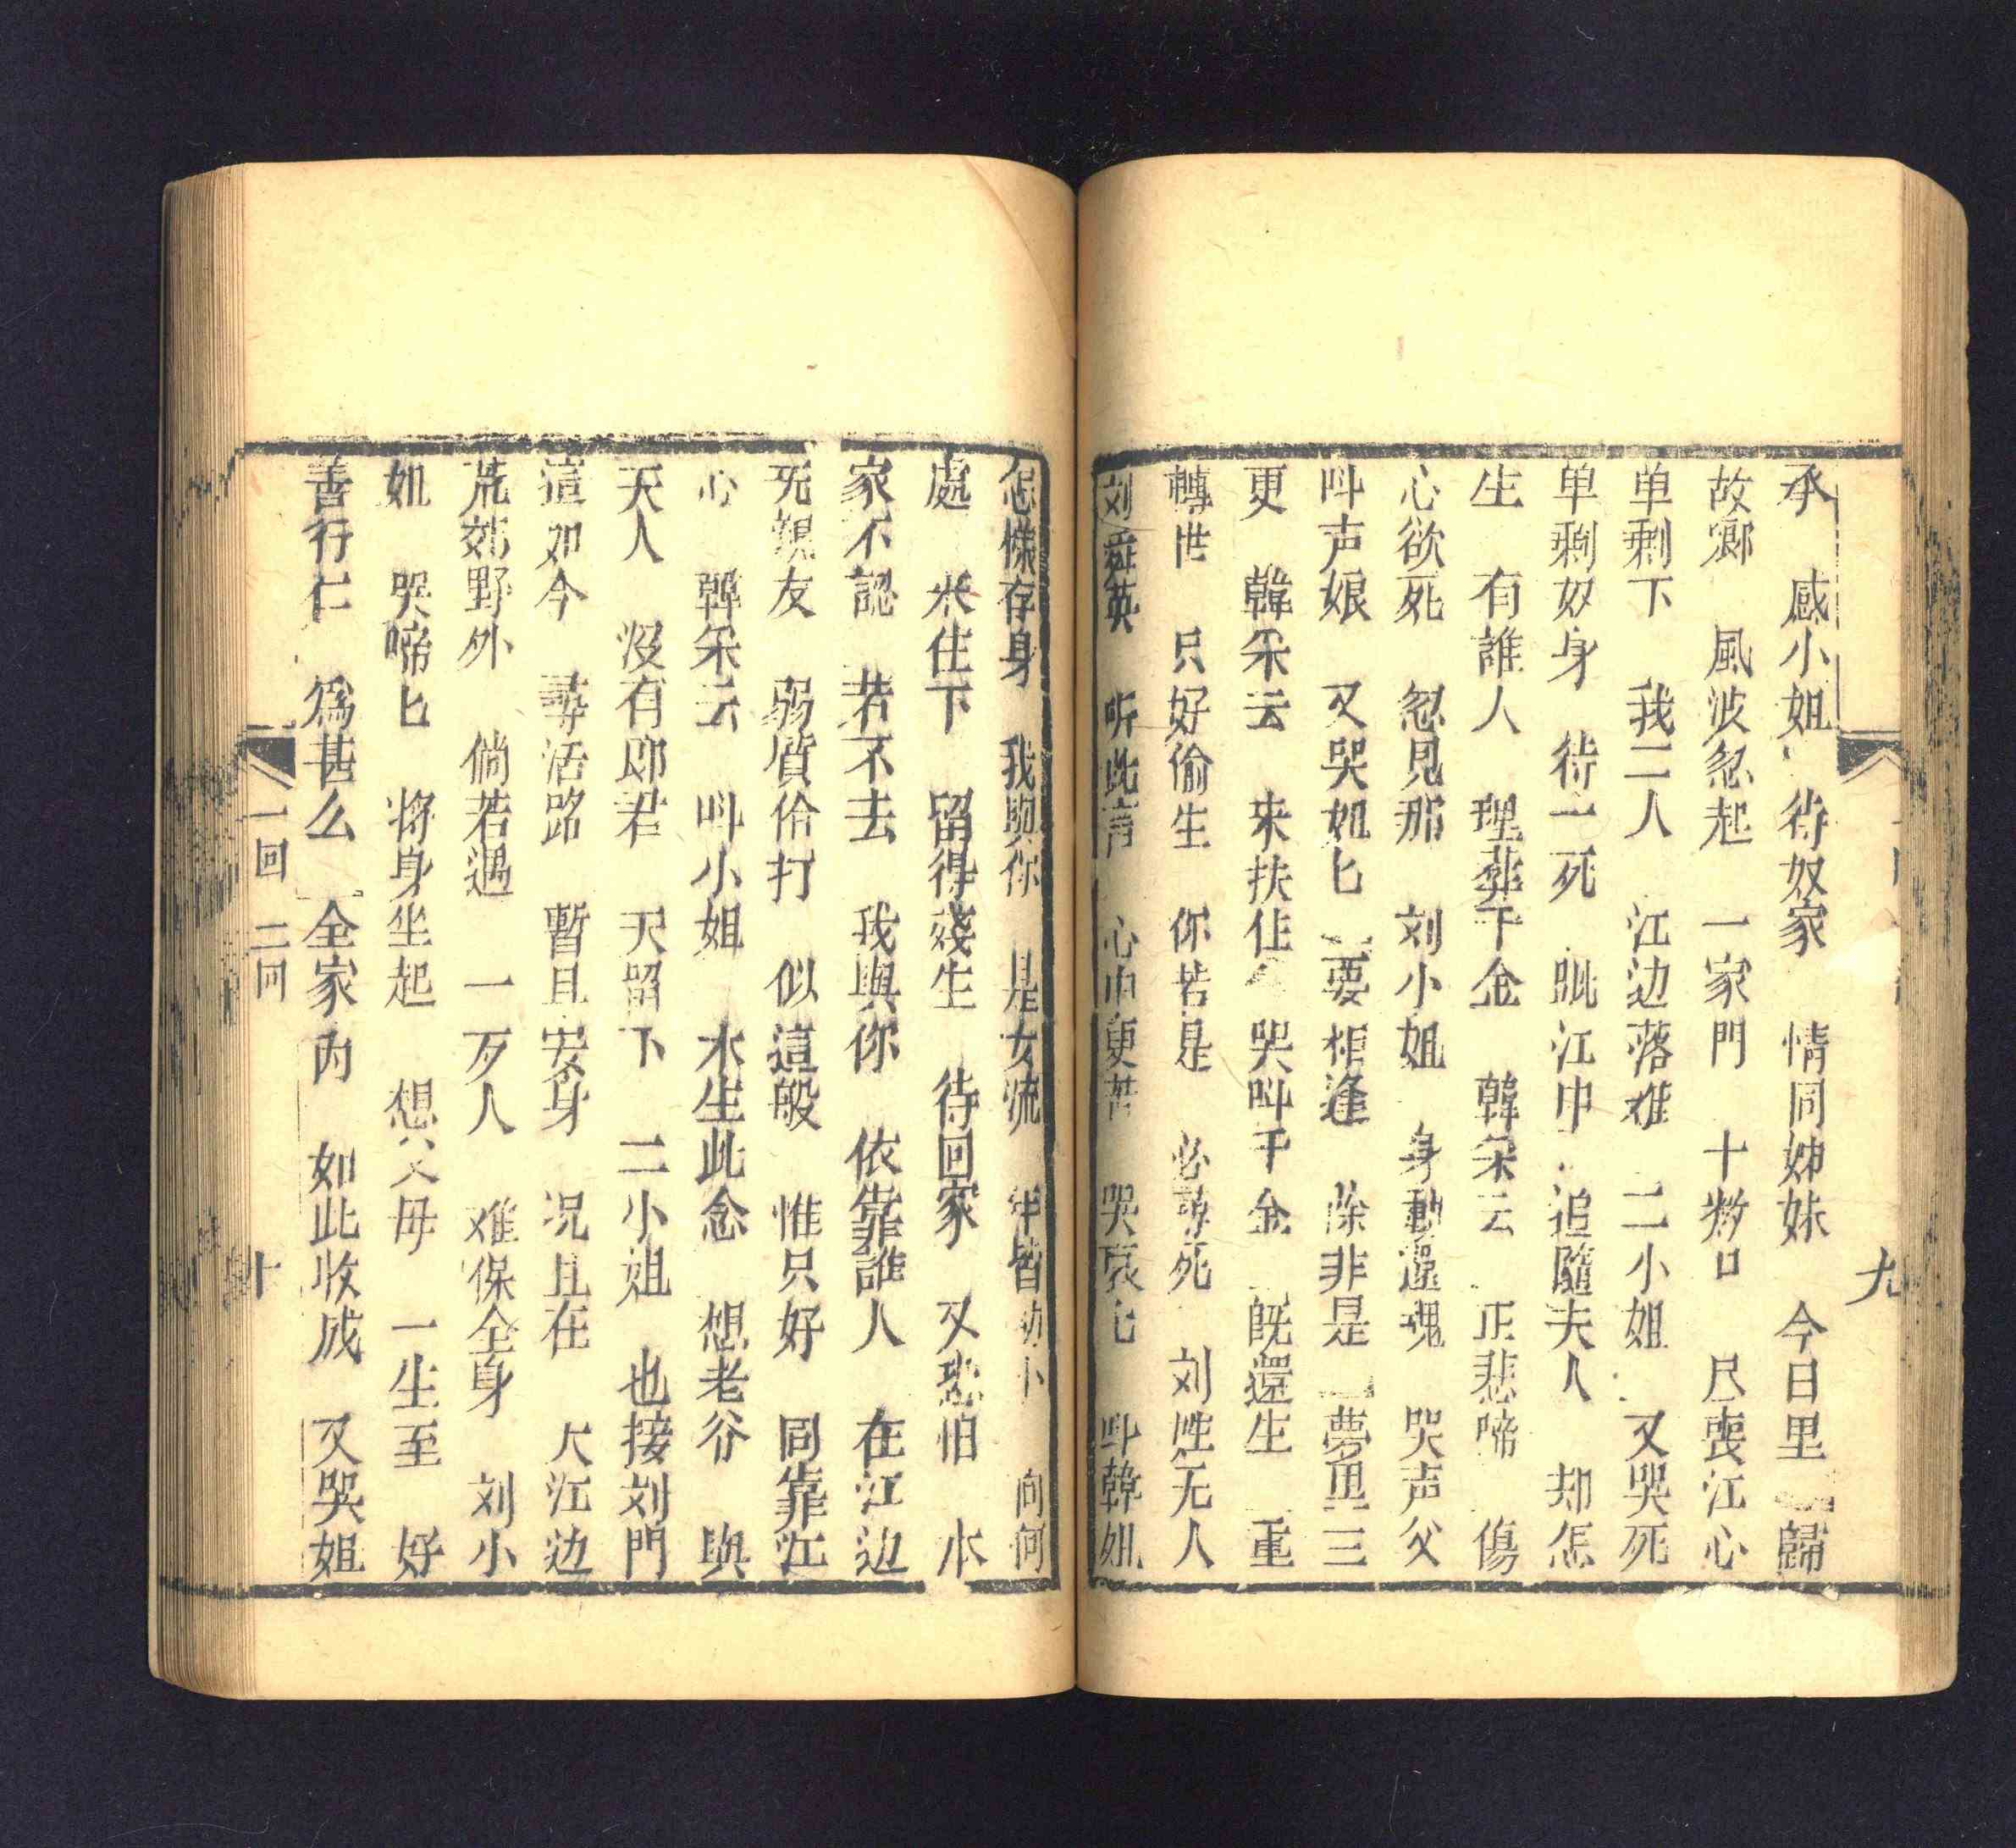 承 感小姐 待奴家 情同姊妹 今日里 歸
故鄉 風波忽起 一家門 十数口 尺喪江心
单剩下 我二人 江边落难 二小姐 又哭死
单剩奴身 待一死 眦江中 追隨夫人 却怎
生 有誰人 理葬千金 韓朵云 正悲啼 傷
心欲死 忽見那 刘小姐 身動還魂 哭声父
呌声娘 又哭姐匕 要相逢 除非是 夢里三
更 韓朵云 來扶住 哭呌千金 既還生 重
轉世 只好偷生 你若是 必尋死 刘姓无人
刘舜英 听此言 心中更苦 哭哀匕 呌韓姐
怎樣存身 我與你 是女流 年皆幼小 向何
處 來住下 留得殘生 待回家 又恐怕 水
家不認 若不去 我與你 依靠誰人 在江边
无親友 弱質伶打 似這般 惟只好 同靠江
心 韓朵云 呌小姐 木生此念 想老爷 與
夫人 沒有郎君 天留下 二小姐 也接刘門
這如今 尋活路 暫且安身 况且在 大江边
荒郊野外 倘若遇 一歹人 难保全身 刘小
姐 哭啼匕 将身坐起 想父母 一生至 好
善行仁 為甚么 全家内 如此收成 又哭姐
一回 二回
十
九